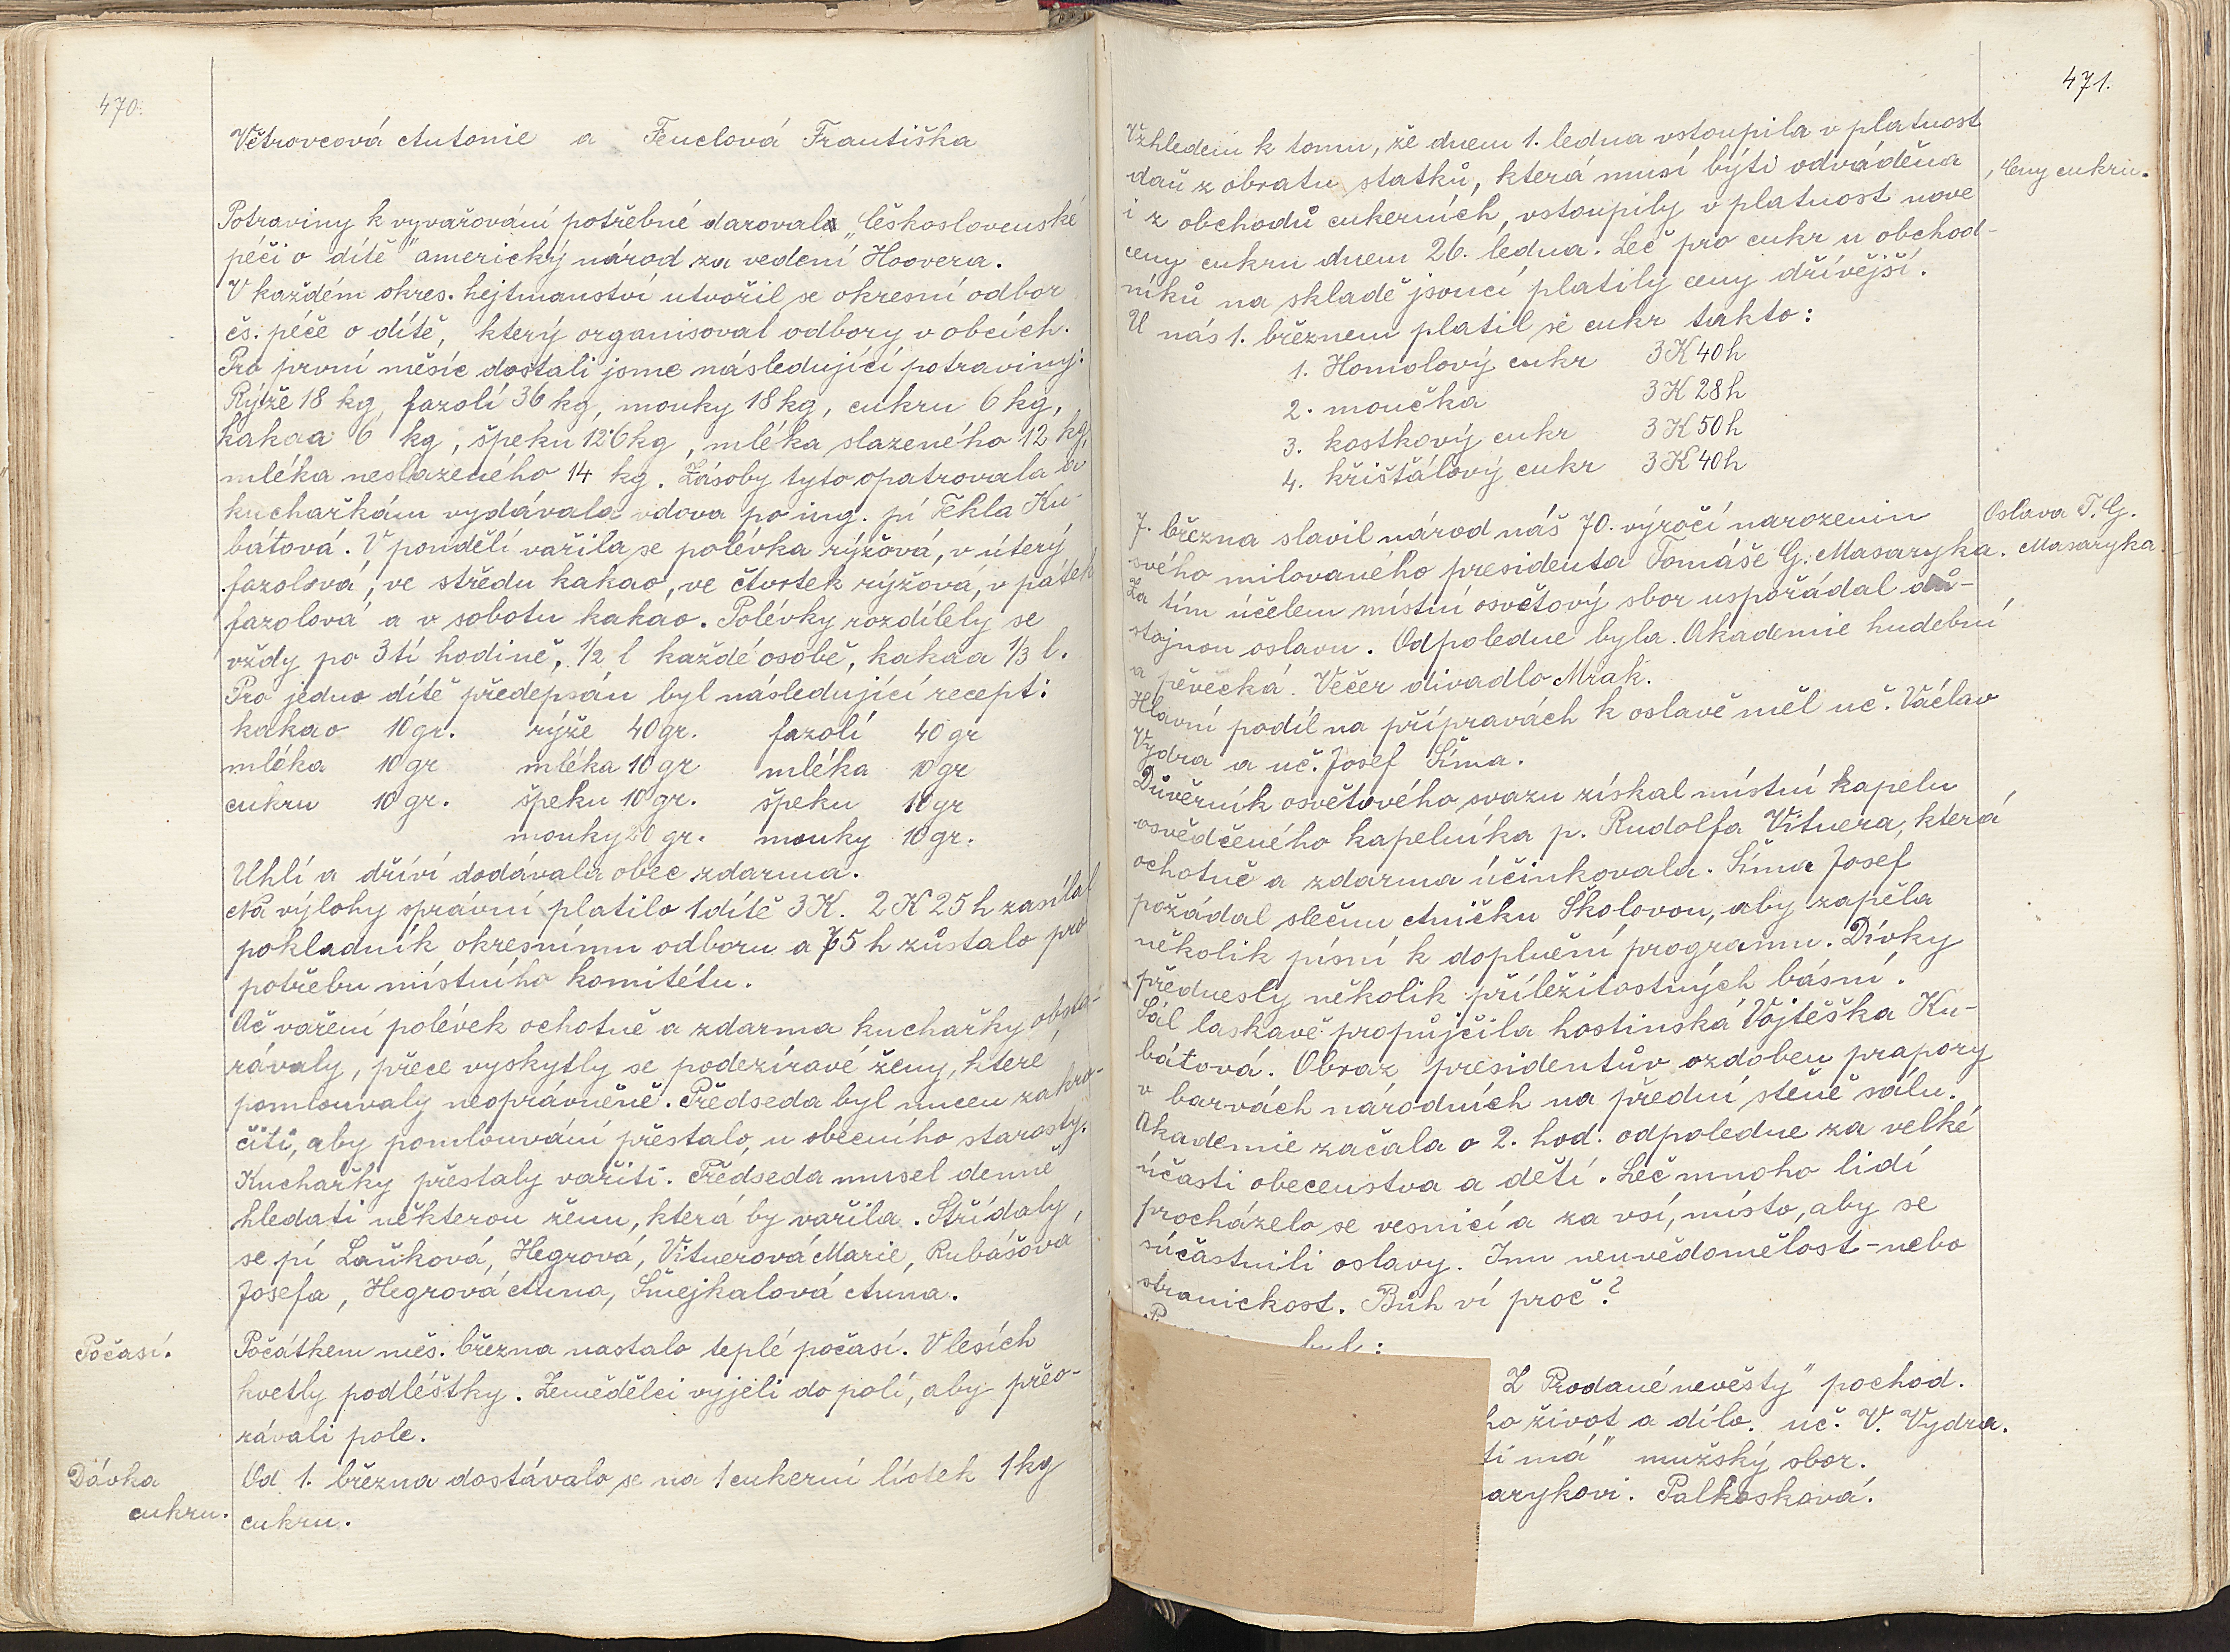 470.
Větrovcová Antonie a Fenclová Františka
Potraviny k vyvařování potřebné daroval „Československé
péči o dítě" americký národ za vedení Hoovera.
V každém okres. hejtmanství utvořil se okresní odbor
čs. péče o dítě, který organisoval odbory v obcích.
Pro první měsíc dostali jsme následující potraviny:
Rýže 18 kg, fazolí 36 kg, mouky 18 kg, cukru 6 kg,
kakaa 6 kg, špeku 12·6 kg, mléka slazeného 12 kg,
mléka neslazeného 14 kg. Zásoby tyto opatrovala a
kuchařkám vydávala vdova po ing. pí Tekla Ku-
bátová. V pondělí vařila se polévka rýžová, v úterý
fazolová, ve středu kakao, ve čtvrtek rýžová, v pátek
fazolová a v sobotu kakao. Polévky rozdílely se
vždy po 3tí hodině, 1/2 l každé osobě, kakaa 1/3 l.
Pro jedno dítě předepsán byl následující recept:
kakao 10 gr. rýže 40 gr. fazolí 40 gr
mléka 10 gr mléka 10 gr mléka 10 gr
cukru 10 gr. špeku 10 gr. špeku 10 gr
mouky 20 gr. mouky 10 gr.
Uhlí a dříví dodávala obec zdarma.
Na výlohy správní platilo 1 dítě 3 K. 2 K 25 h zasílal
pokladník okresnímu odboru a 75 h zůstalo pro
potřebu místního komitétu.
Ač vaření polévek ochotně a zdarma kuchařky obsta-
rávaly, přece vyskytly se podezíravé ženy, které
pomlouvaly neoprávněně. Předseda byl nucen zakro-
čiti, aby pomlouvání přestalo, u obecního starosty.
Kuchařky přestaly vařiti. Předseda musel denně
hledati některou ženu, která by vařila. Střídaly
se pí Laňková, Hegrová, Vitnerová Marie, Rubášová
Josefa, Hegrová Anna, Šnejkalová Anna.
Počasí.
Počátkem měs. března nastalo teplé počasí. V lesích
kvetly podléštky. Zemědělci vyjeli do polí, aby přeo-
rávali pole.
Dávka
cukru.
Od 1. března dostávalo se na 1 cukerní lístek 1 kg
cukru.
471.
Vzhledem k tomu, že dnem 1. ledna vstoupila v platnost
daň z obratu statků, která musí býti odváděna
i z obchodů cukerních, vstoupily v platnost nové
ceny cukru dnem 26. ledna. Leč pro cukr u obchod-
níků na skladě jsoucí platily ceny dřívější.
U nás 1. březnem platil se cukr takto:
Ceny cukru.
1. Homolový cukr 3 K 40 h
2. moučka 3 K 28 h
3. kostkový cukr 3 K 50 h
4. křišťálový cukr 3 K 40 h
Oslava T. G.
Masaryka.
7. března slavil národ náš 70. výročí narozenin
svého milovaného presidenta Tomáše G. Masaryka.
Za tím účelem místní osvětový sbor uspořádal dů-
stojnou oslavu. Odpoledne byla Akademie hudební
a pěvecká. Večer divadlo Mrak.
Hlavní podíl na přípravách k oslavě měl uč. Václav
Vydra a uč. Josef Šíma.
Důvěrník osvětového svazu získal místní kapelu
osvědčeného kapelníka p. Rudolfa Vitnera, která
ochotně a zdarma účinkovala. Šíma Josef
požádal slečnu Aničku Školovou, aby zapěla
několik písní k doplnění programu. Dívky
přednesly několik příležitostných básní.
Sál laskavě propůjčila hostinská Vojtěška Ku-
bátová. Obraz presidentův ozdoben prapory
v barvách národních na přední stěně sálu.
Akademie začala o 2. hod. odpoledne za velké
účasti obecenstva a dětí. Leč mnoho lidí
procházelo se vesnicí a za vsí, místo, aby se
súčastnili oslavy. Inu neuvědomělost - nebo
stranickost. Bůh ví proč?
byl:
Z Prodané nevěsty" pochod.
ho život a dílo. uč. V. Vydra.
tí má" mužský sbor.
arykovi. Palkosková.